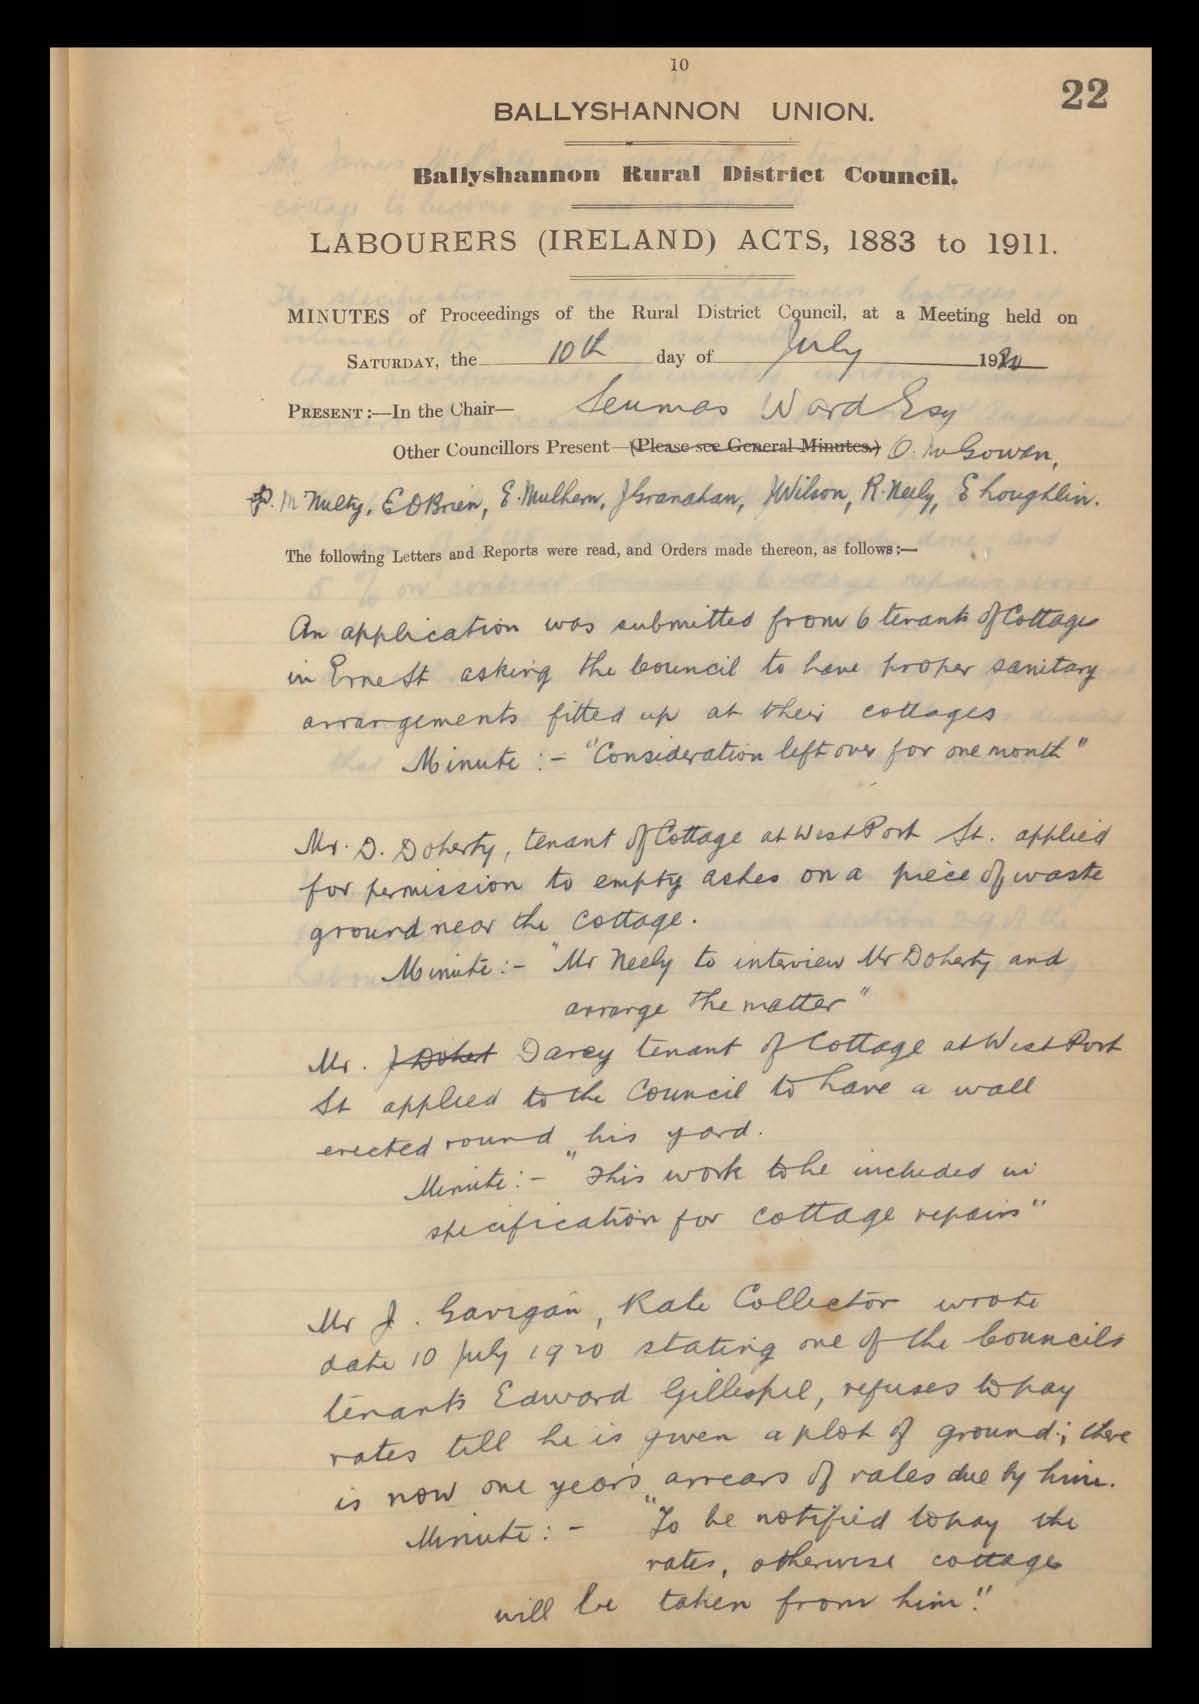 10
22
BALLYSHANNON UNION.
Ballyshannon Rural District Council.
LABOURERS (IRELAND) ACTS, 1883 to 1911.
MINUTES of Proceedings of the Rural District Council, at a Meeting held on
SATURDAY, the 10th day of July 1920
PRESENT:—In the Chair— Seumas Ward Esq
Other Councillors Present—(Please see General Minutes.) O. McGowan,
P. McNulty, E O Brien, E. Mulhern, J Granahan, J Wilson, R. Neely, E Loughlin.
The following Letters and Reports were read, and Orders made thereon, as follows:—
An application was submitted from 6 tenants of Cottages
in Erne St asking the Council to have proper sanitary
arrangements fitted up at their cottages
Minute :- "Consideration left over for one month"
Mr. D. Doherty, tenant of Cottage at West Port St. applied
for permission to empty ashes on a piece of waste
ground near the cottage.
Minute :- "Mr Neely to interview Mr Doherty and
arrange the matter"
Mr. J Dohert Darcy tenant of Cottage at West Port
St applied to the Council to have a wall
erected round his yard.
Minute :- "This work to be included in
specification for cottage repairs"
Mr J. Gavigan, Rate Collector wrote
date 10 July 1920 stating one of the Councils
tenants Edward Gillespie, refuses to pay
rates till he is given a plot of ground; there
is now one year's arrears of rates due by him.
Minute :- "To be notified to pay the
rates, otherwise cottage
will be taken from him."